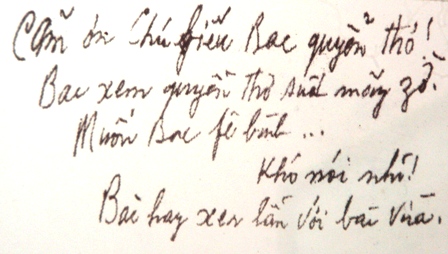 Cảm ơn Chú biếu Bac quyển thơ!
Bac xem quyển thơ suốt mấy zờ.
Muốn Bac fê bình ...
Khó nói nhỉ!
Bài hay xen lẫn với bài vừa.